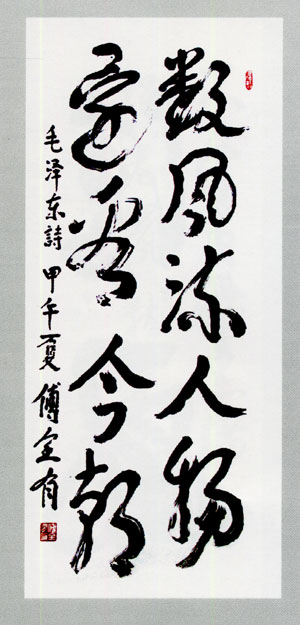 数风流人物
还看今朝
毛泽东詩 甲午夏 傅全有